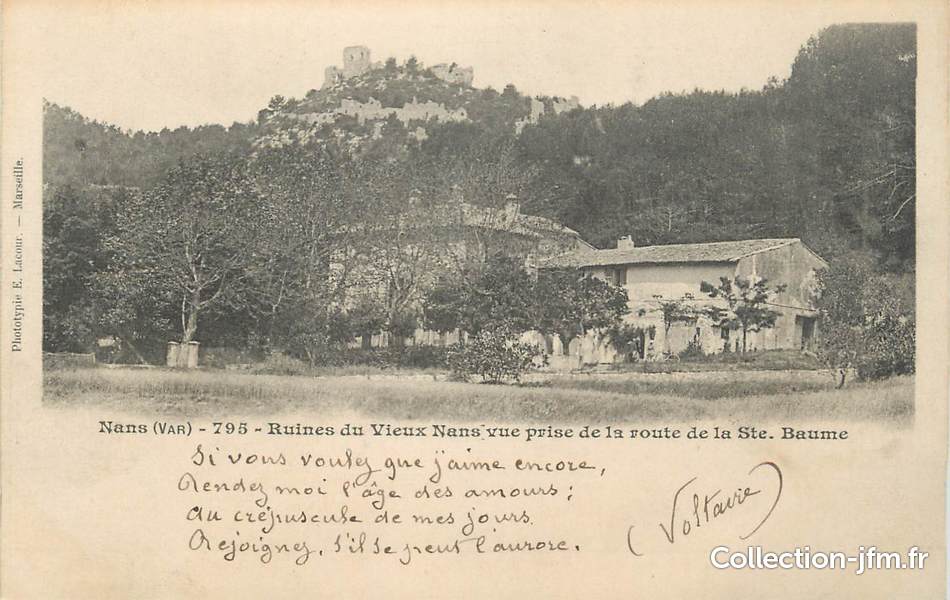 Phototypie E. Lacour. — Marseille.
Nans (VAR) - 795 - Ruines du Vieux Nans vue prise de la route de la Ste. Baume
Si vous voulez que j'aime encore,
Rendez moi l'âge des amours ;
Au crépuscule de mes jours
Rejoignez, s'il se peut l'aurore.
(Voltaire)
Collection-jfm.fr